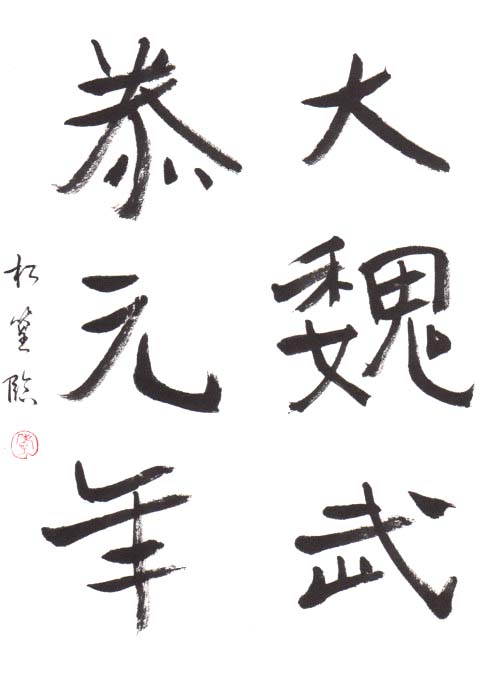 大魏武
泰元年
松篁臨